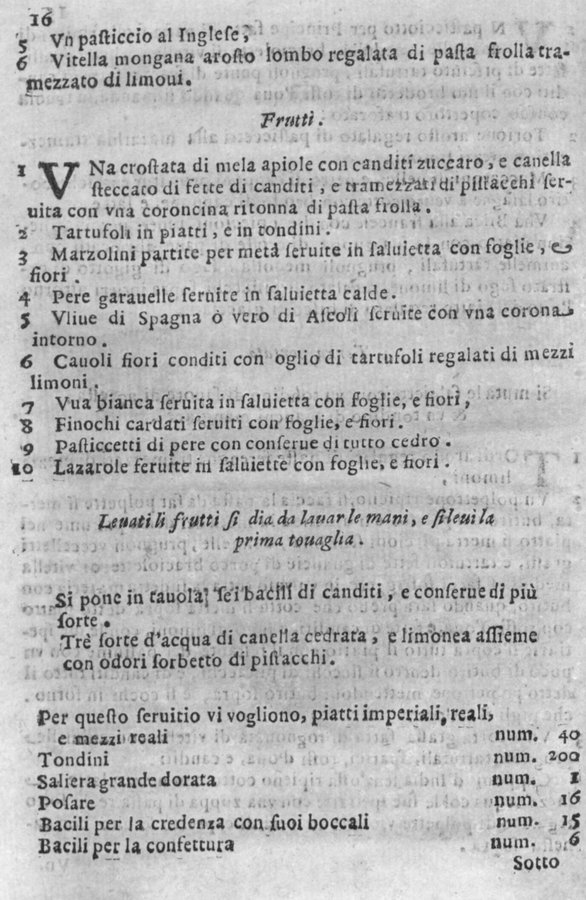 16
5 Vn pasticcio al Inglese,
6 Vitella mongana arosto lombo regalata di pasta frolla tra-
mezzato di limoui.
Frutti.
1 VNa crostata di mela apiole con canditi zuccaro, e canella
steccato di fette di canditi, e tramezzati di pistacchi ser-
uita con vna coroncina ritonna di pasta frolla.
2 Tartufoli in piatti, e in tondini.
3 Marzolini partite per metà seruite in saluietta con foglie, e
fiori.
4 Pere garauelle seruite in saluietta calde.
5 Vliue di Spagna ò vero di Ascoli seruite con vna corona
intorno.
6 Cauoli fiori conditi con oglio di tartufoli regalati di mezzi
limoni.
7 Vua bianca seruita in saluietta con foglie, e fiori,
8 Finochi cardati seruiti con foglie, e fiori.
9 Pasticcetti di pere con conserue di tutto cedro.
10 Lazarole seruite in saluiette con foglie, e fiori.
Leuati li frutti si dia da lauar le mani, e si leui la
prima touaglia.
Si pone in tauola sei bacili di canditi, e conserue di più
sorte.
Trè sorte d'acqua di canella cedrata, e limonea assieme
con odori sorbetto di pistacchi.
Per questo seruitio vi vogliono, piatti imperiali, reali,
e mezzi reali num. 40
Tondini num. 200
Saliera grande dorata num. 1
Posate num. 16
Bacili per la credenza con suoi boccali num. 15
Bacili per la confettura num. 6
Sotto